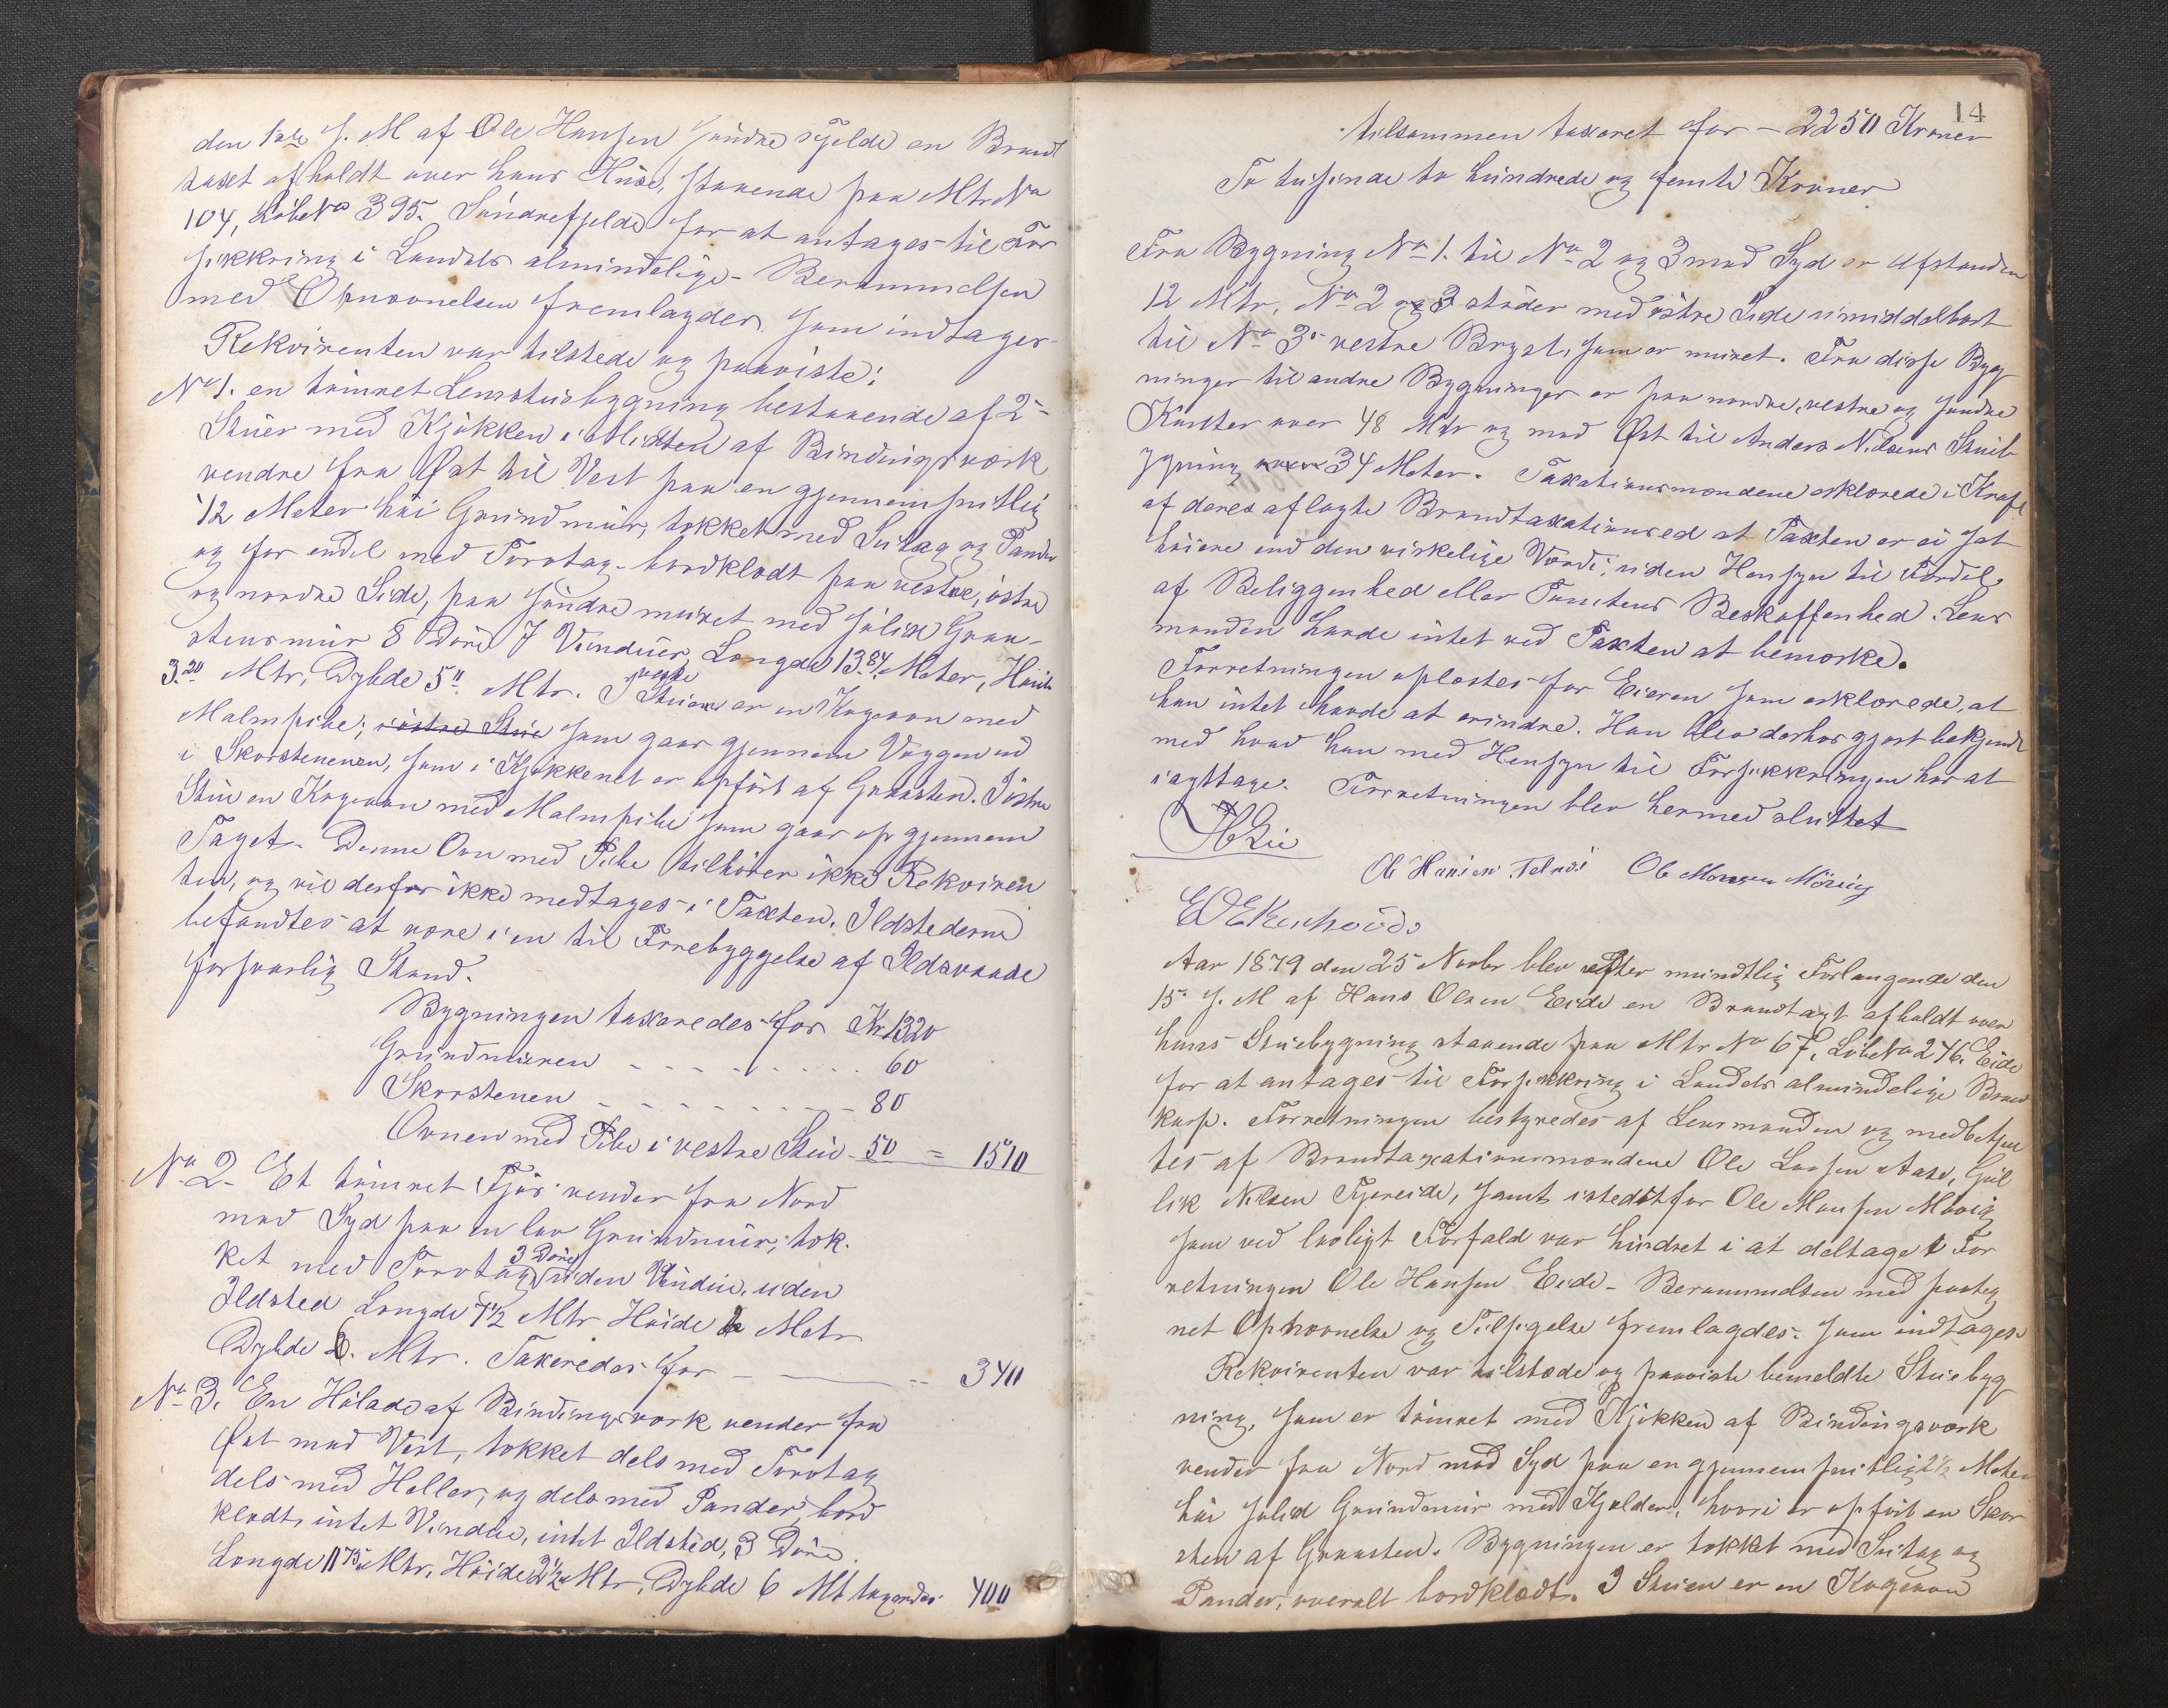 den 1ste s. M af Ole Hansen Söndre Fjelde en Brand
taxt afholdt over hans Huse, staaende paa Mtr No
104, LöbeNo 395. Söndrefjelde for at antages til For
sikkring i Landets almindelige - Berammelsen
med Opnævnelsen fremlagdes, som indtages
Rekvirenten var tilstede og paaviste:
No 1. en tömret Lemstuebygning bestaaende af 2
Stuer med Kjökken i Midten af Bindingsværk
vendre fra Öst til Vest paa en gjennemsnitlig
1/2 Meter höi Grundmür, tækket med Sutag og Pander
og for endel med Torvtag - bordklædt paa vestre, östre
og nordre Side, paa söndre muret med solid Graa-
stensmür 8 Döre 7 Vinduer Længde 13.84 Meter, Höide
3.20 Mtr, Dybde 5" Mtr. I vestre Stuen er en Kogeovn med
Malmpibe; i östre Stue som gaar gjennem Væggen ud
i Skorstenen, som i Kjökkenet er opfört af Graasten. I östre
Stue en Kogeovn med Malmpibe som gaar op gjennem
Taget. Denne Ovn med Pibe tilhörer ikke Rekviren
ten, og vil derfor ikke medtages i Taxten. Ildstederne
befandtes at være i en til Forebyggelse af Ildsvaade
forsvarlig Stand.
Bygningen taxeredes for Kr 1320
Grundmüren - - - - - - - - 60
Skorstenen - - - - - - - - 80
Ovnen med Pibe i vestre Stue - 50 = 1510
No 2 - Et tömret Fjös vender fra Nord
mod Syd paa en lav Grundmür; tæk-
ket med Torvtag 3 Döre uden Vindue, uden
Ildsted Længde 7 1/2 Mtr Höide 2 Metr
Dybde 6. Mtr. Taxeredes for - - 340
No 3. En Hölade af Bindingsværk vender fra
Öst mod Vest, tækket dels med Torvtag
dels med Heller, og dels med Pander, bord
klædt, intet Vindue, intet Ildsted, 3 Döre.
Længde 11 75 Mtr. Höide 2 1/2 Mtr, Dybde 6 Mt taxeredes 400
14
tilsammen taxeret for - 2250 Kroner
To tusinde to hundrede og femti Kroner
Fra Bygning No 1. til No 2 og 3 mod Syd er Afstanden
12 Mtr, No 2 og 3 stöder med östre Side umiddelbart
til No 3s vestre Bryst, som er muret. Fra disse Byg
ninger til andre Bygninger er paa nordre, vestre og söndre
Kanter over 48 Mtr og mod Öst til Anders Nilsens Stueb
ygning over 34 Meter. Taxationsmændene erklærede i Kraft
af deres aflagte Brandtaxationsed at Taxten er ei sat
höiere end den virkelige Værdi, uden Hensyn til Fordel
af Beliggenhed eller Tomtens Beskaffenhed. Lens
manden havde intet ved Taxten at bemærke.
Forretningen oplæstes for Eieren som erklærede, at
han intet havde at erindre. Han blev derhos gjort bekjendt
med hvad han med Hensyn til Forsikkringen har at
iagttage. Forretningen blev hermed sluttet
Lie
Ole Hansen Telnæs Ole Monsen Mövig
Aar 1879 den 25 Novbr blev efter mundtlig Forlangende den
15. s. M af Hans Olsen Eide en Brandtaxt afholdt over
hans Stuebygning staaende paa Mtr No 67, LöbeNo 246. Eide
for at antages til Forsikkring i Landets almindelige Brand
kasse. Forretningen bestyredes af Lensmanden og medbetjen
tes af Brandtaxationsmændene Ole Larsen Aase, Gul
lik Nilsen Fjereide, samt istedetfor Ole Monsen Mövig
som ved lovligt Forfald var hindret i at deltage i For
retningen Ole Hansen Eide - Berammelsen med paateg
net Opnævnelse og Tilsigelse fremlagdes, som indtages.
Rekvirenten var tilstede og paaviste bemeldte Stuebyg
ning, som er tömret med Kjökken af Bindingsværk
vender fra Nord mod Syd paa en gjennemsnitlig 2 1/2 Meter
höi solid Grundmür med Kjelder, hvori er opfört en Skor
sten af Graasten. Bygningen er tækket med Sutag og
Pander, overalt bordklædt. I Stuen er en Kogeovn